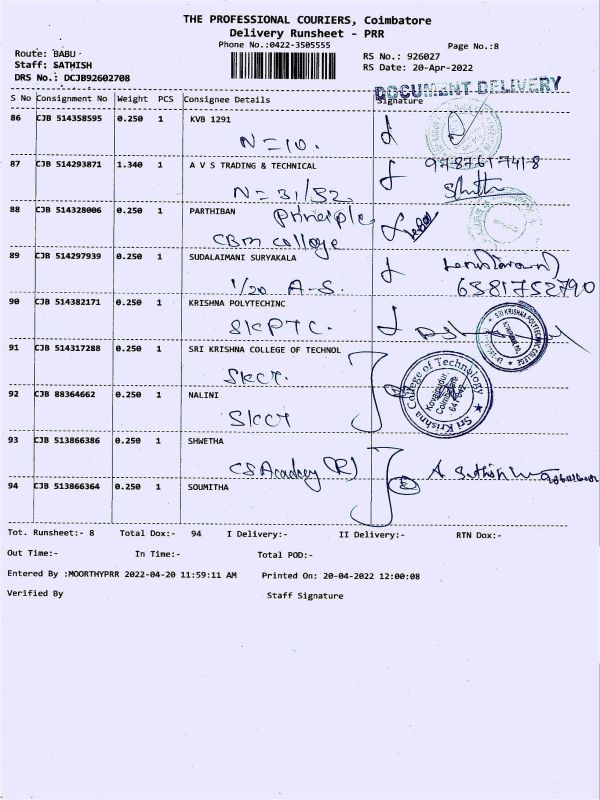 THE PROFESSIONAL COURIERS, Coimbatore
Delivery Runsheet - PRR
Phone No.:0422-3505555
Page No.:8
Route: BABU
Staff: SATHISH
DRS No.: DCJB92602708
RS No.: 926027
RS Date: 20-Apr-2022
DOCUMENT DELIVERY
S No Consignment No Weight PCS Consignee Details Signature
86 CJB 514358595 0.250 1 KVB 1291
N = 10.
87 CJB 514293871 1.340 1 A V S TRADING & TECHNICAL
9787617418
N = 31/52.
88 CJB 514328006 0.250 1 PARTHIBAN
Principle
CBM college
89 CJB 514297939 0.250 1 SUDALAIMANI SURYAKALA
1/20 A-S.
6381752790
90 CJB 514382171 0.250 1 KRISHNA POLYTECHINC
SKPTC.
SRI KRISHNA POLYTECHNIC COLLEGE
91 CJB 514317288 0.250 1 SRI KRISHNA COLLEGE OF TECHNOL
SKCT.
Sri Krishna College of Technology
Kovaipudur,
Coimbatore
641 042
92 CJB 88364662 0.250 1 NALINI
SKCT
93 CJB 513866386 0.250 1 SHWETHA
CS Academy (R)
94 CJB 513866364 0.250 1 SOUMITHA
Tot. Runsheet:- 8 Total Dox:- 94 I Delivery:- II Delivery:- RTN Dox:-
Out Time:- In Time:- Total POD:-
Entered By :MOORTHYPRR 2022-04-20 11:59:11 AM Printed On: 20-04-2022 12:00:08
Verified By Staff Signature